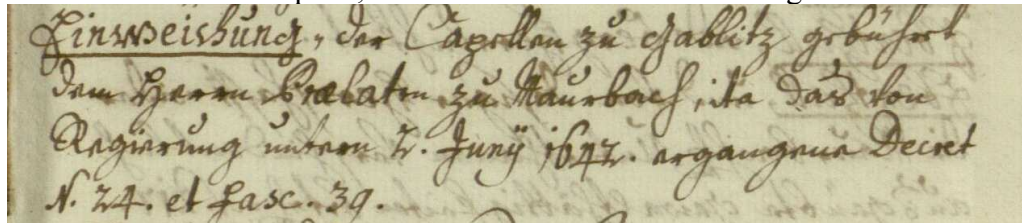 Einweishung, der Capellen zu Gablitz gebührt
dem Herrn Prælaten zu Maurbach, ita das von
Regierung untern 2. Junÿ 1642. ergangene Decret
N. 24. et Fasc. 39.